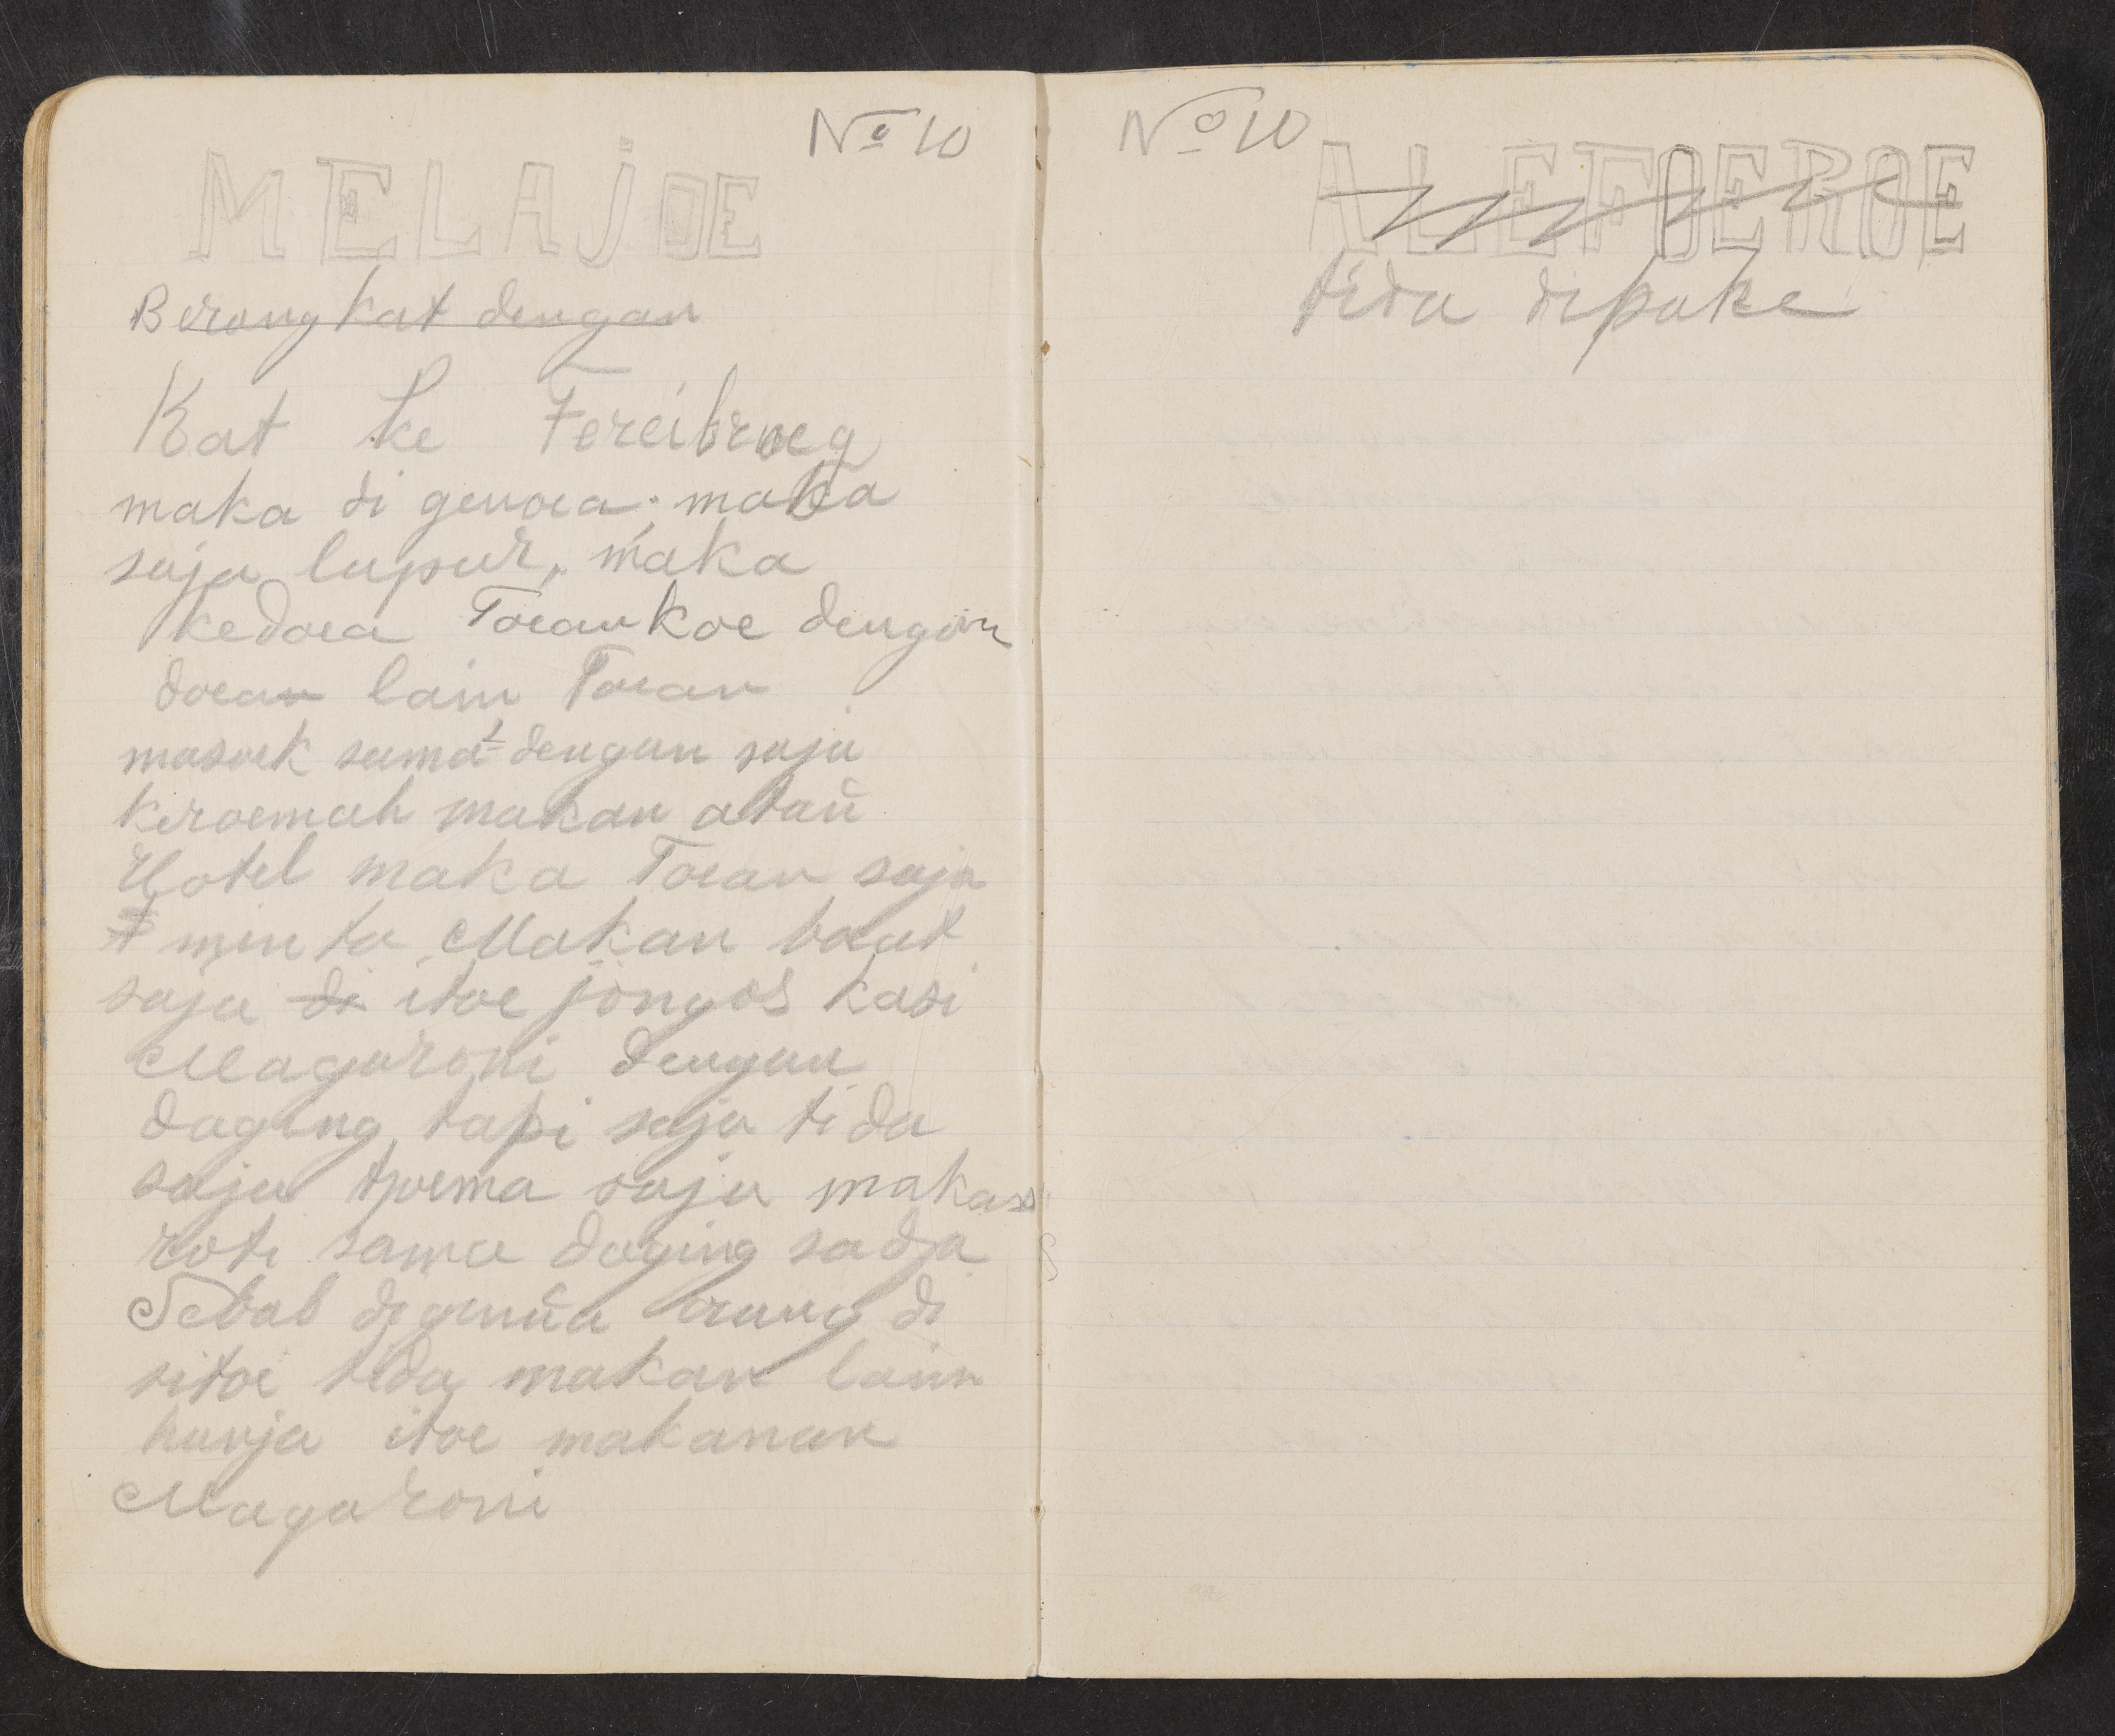 Nº 10
MELAJOE
Berangkat dengan
Kat ke Fereibroeg
maka di genoea. maka
saja lapar, maka
kedoea Toeankoe dengan
doea lain Toean
masoek sama² dengan saja
keroemah makan ataŭ
Hotel maka Toean saja
minta Makan boeat
saja di itoe jongos kasi
Magaroni dengan
daging tapi saja tida
saja tjoema saja makan
roti sama daging sadja
Sebab digenŭa orang di
sitoe tida makan lain
hanja itoe makanan
Magaroni
Nº 10
ALEFOEROE
tida dipake